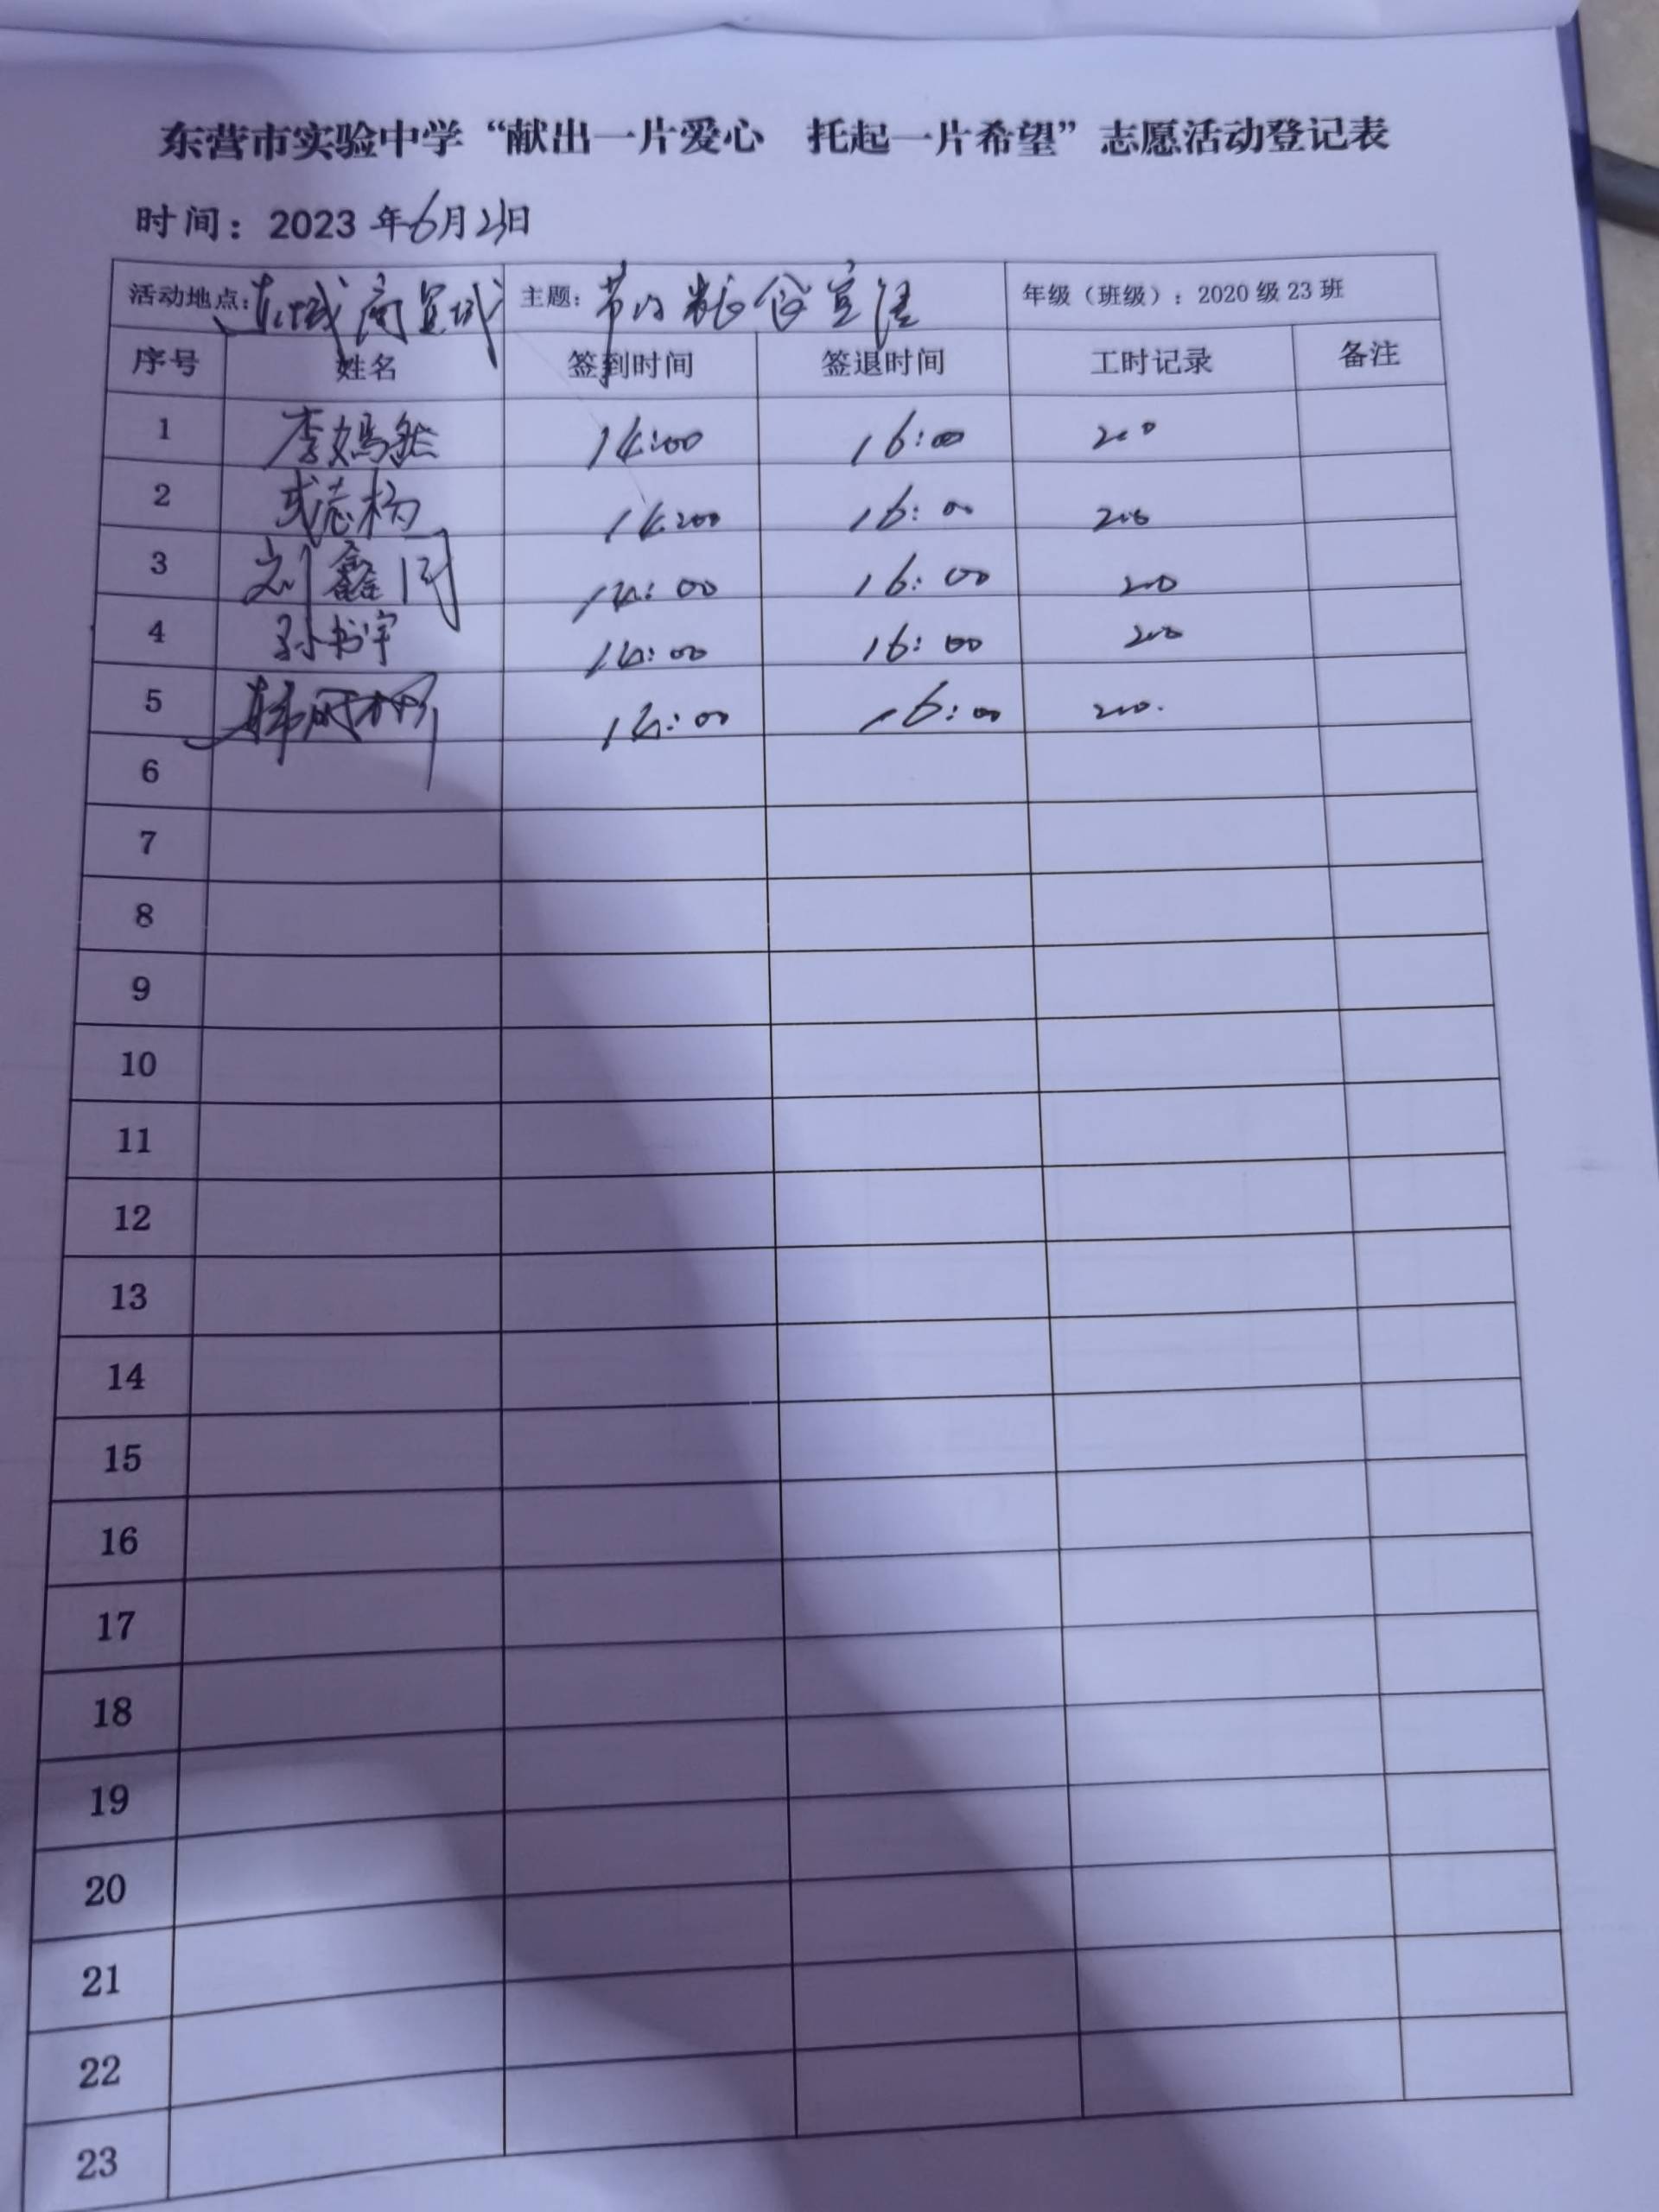 东营市实验中学“献出一片爱心 托起一片希望”志愿活动登记表
时间：2023年6月23日
活动地点：东城商贸城 主题：节约粮食宣传 年级（班级）：2020级23班
序号 姓名 签到时间 签退时间 工时记录 备注
1 李嫣然 14:00 16:00 200
2 志杨 14:00 16:00 200
3 刘鑫同 14:00 16:00 200
4 孙书宇 14:00 16:00 200
5 韩 14:00 16:00 200
6
7
8
9
10
11
12
13
14
15
16
17
18
19
20
21
22
23